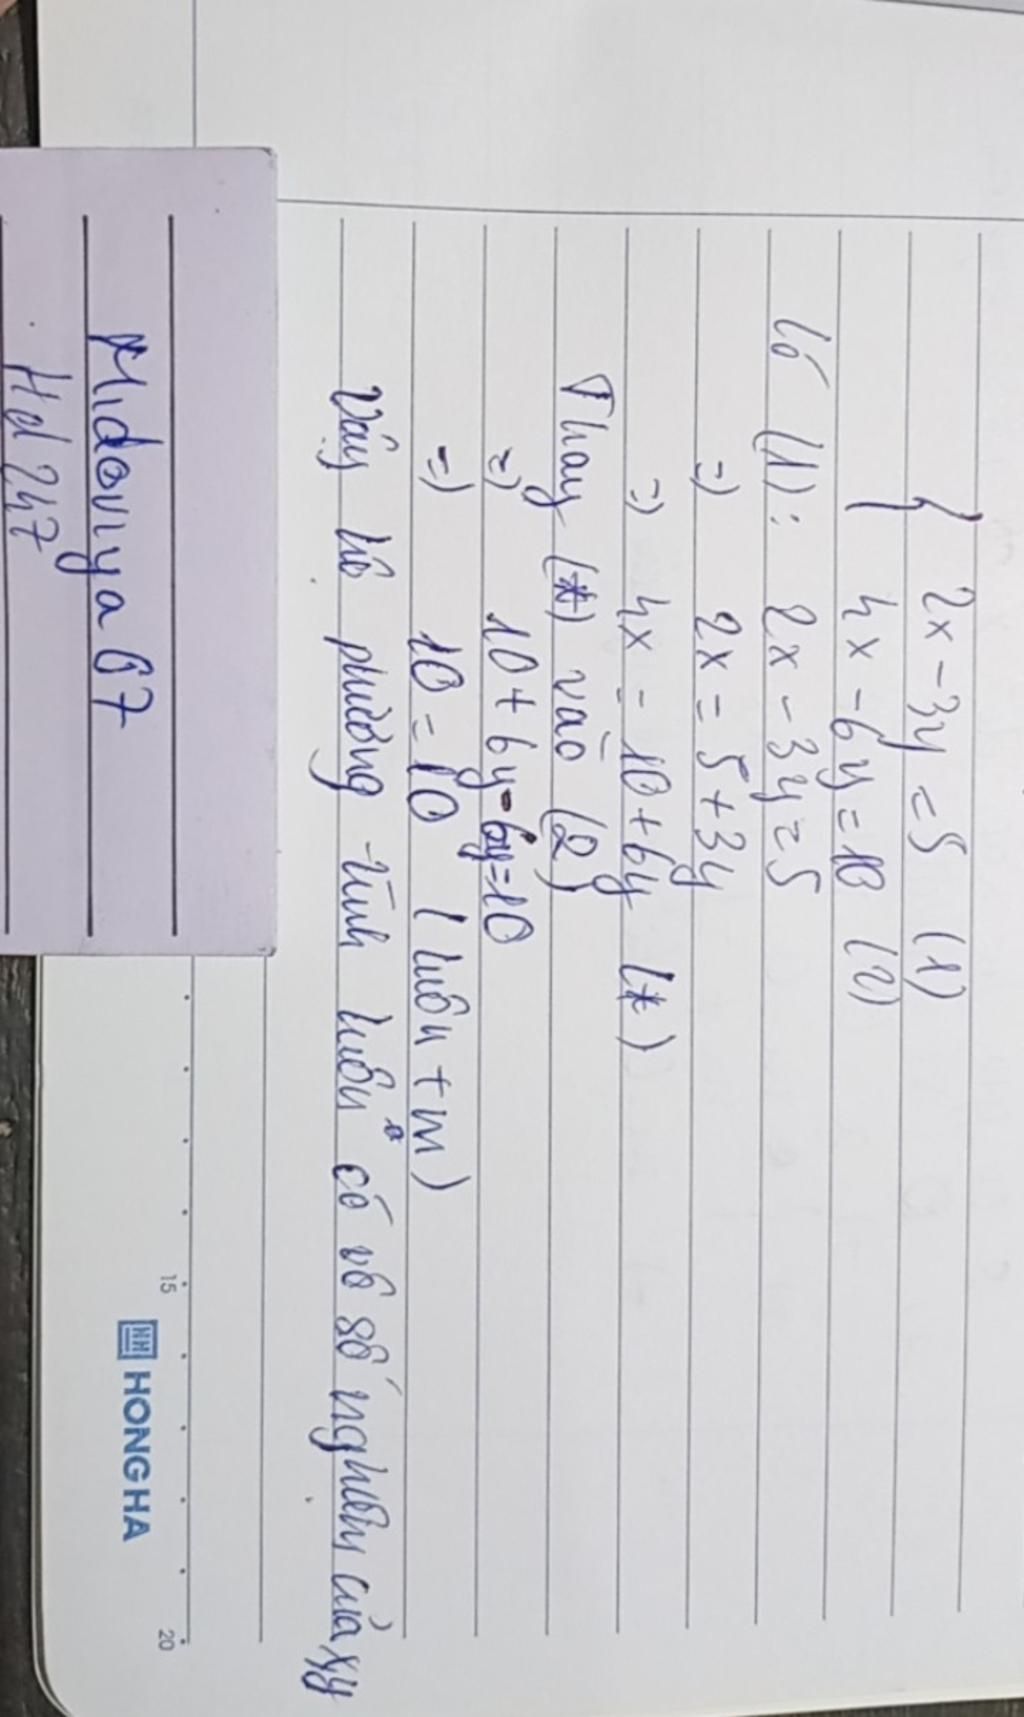 { 2x - 3y = 5 (1)
4x - 6y = 10 (2)
Có (1): 2x - 3y = 5
=) 2x = 5 + 3y
=) 4x = 10 + 6y (*)
Thay (*) vào (2)
=) 10 + 6y - 6y = 10
=) 10 = 10 (luôn + m)
Vậy hệ phương trình luôn có vô số nghiệm của xy
Midoriya 67
Hd 247
15
20
HH HONG HA